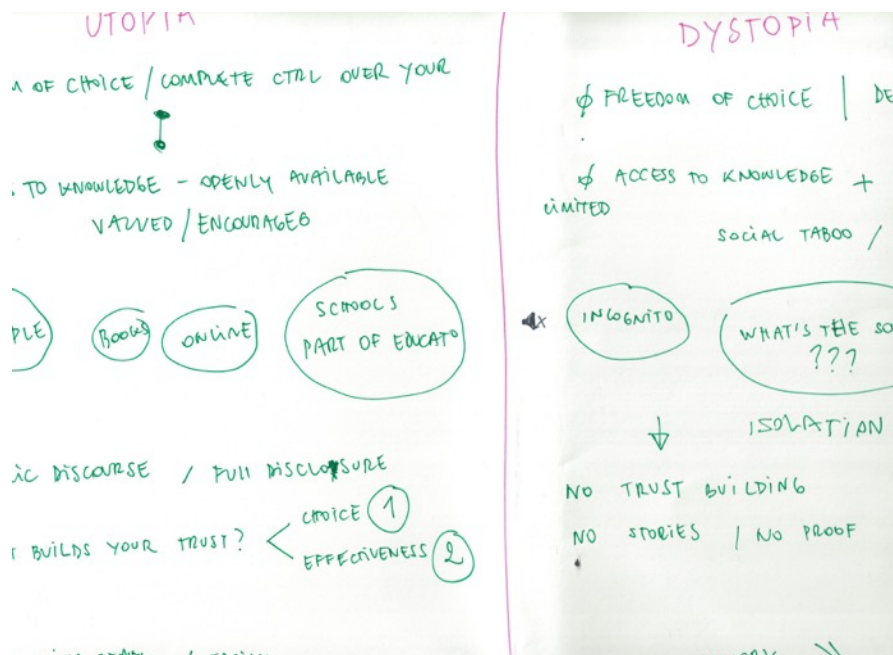 UTOPIA
M OF CHOICE / COMPLETE CTRL OVER YOUR
TO KNOWLEDGE – OPENLY AVAILABLE
VALVED / ENCOURAGES
PLE
BOOKS
ONLINE
SCHOOLS
PART OF EDUCATO
IC DISCOURSE / FULL DISCLOSURE
T BUILDS YOUR TRUST?
CHOICE 1
EFFECTIVENESS 2
DYSTOPIA
∅ FREEDOM OF CHOICE | DE
∅ ACCESS TO KNOWLEDGE +
LIMITED
SOCIAL TABOO /
INCOGNITO
WHAT'S THE SO
???
ISOLATION
NO TRUST BUILDING
NO STORIES / NO PROOF